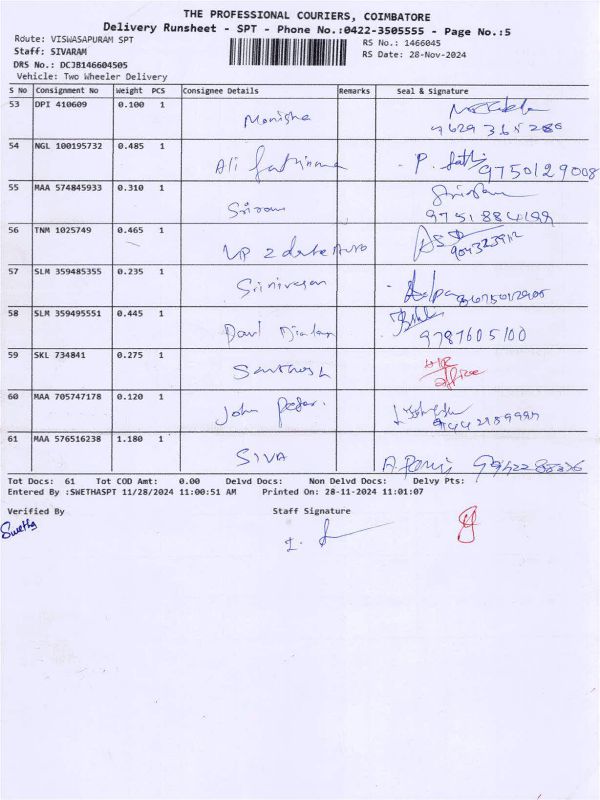 THE PROFESSIONAL COURIERS, COIMBATORE
Delivery Runsheet - SPT - Phone No.:0422-3505555 - Page No.:5
Route: VISWASAPURAM SPT RS No.: 1466045
Staff: SIVARAM RS Date: 28-Nov-2024
DRS No.: DCJB146604505
Vehicle: Two Wheeler Delivery
S No Consignment No Weight PCS Consignee Details Remarks Seal & Signature
53 DPI 410609 0.100 1 Monisha
54 NGL 100195732 0.485 1 Ali Fathima P. 9750129008
55 MAA 574845933 0.310 1 Sriram
56 TNM 1025749 0.465 1 UP 2 date Auto
57 SLM 359485355 0.235 1 Srinivasan
58 SLM 359495551 0.445 1 9787605100
59 SKL 734841 0.275 1 Santhosh
office
60 MAA 705747178 0.120 1 John
61 MAA 576516238 1.180 1 SIVA
Tot Docs: 61 Tot COD Amt: 0.00 Delvd Docs: Non Delvd Docs: Delvy Pts:
Entered By :SWETHASPT 11/28/2024 11:00:51 AM Printed On: 28-11-2024 11:01:07
Verified By Staff Signature
Swetha